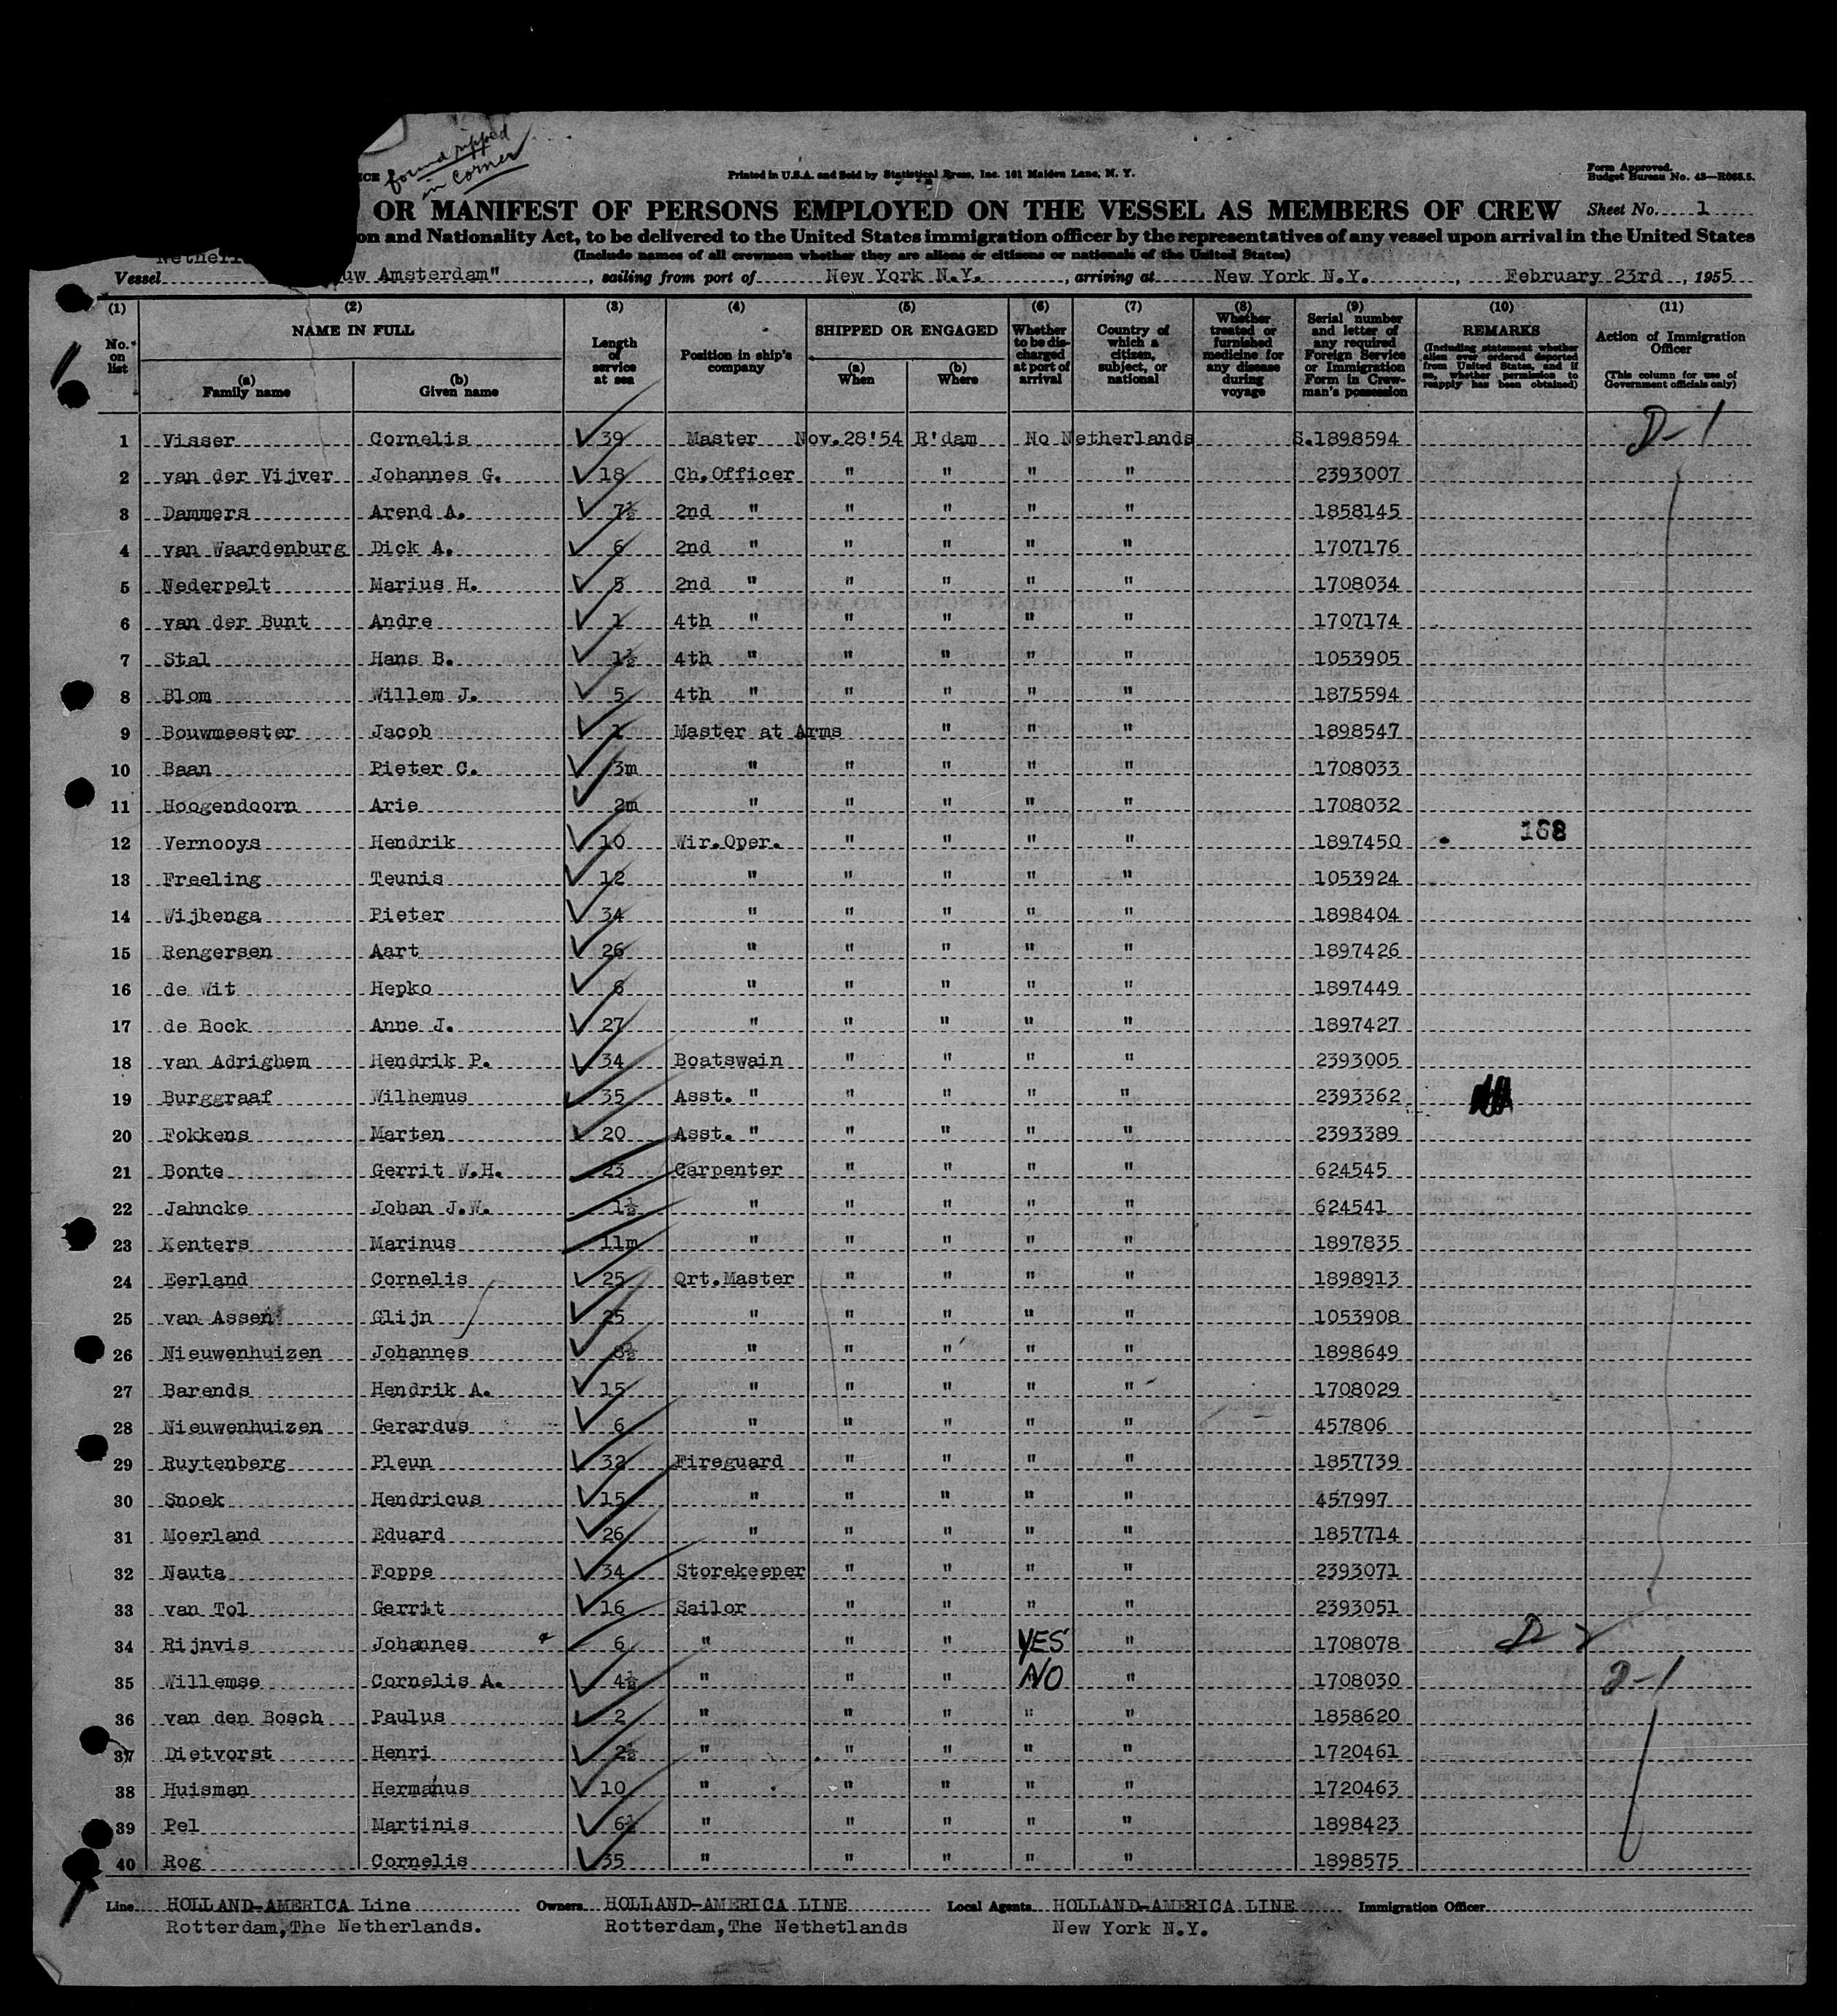 found ripped
in corner
Printed in U.S.A. and Sold by Statistical Press, Inc. 161 Maiden Lane, N. Y.
Form Approved.
Budget Bureau No. 43—R065.5.
OR MANIFEST OF PERSONS EMPLOYED ON THE VESSEL AS MEMBERS OF CREW Sheet No. 1
on and Nationality Act, to be delivered to the United States immigration officer by the representatives of any vessel upon arrival in the United States
(Include names of all crewmen whether they are aliens or citizens or nationals of the United States)
Vessel uw Amsterdam" , sailing from port of New York N.Y. , arriving at New York N.Y. , February 23rd , 1955
(1) (2) (3) (4) (5) (6) (7) (8) (9) (10) (11)
No. on list
NAME IN FULL
(a) Family name
(b) Given name
Length of service at sea
Position in ship's company
SHIPPED OR ENGAGED
(a) When
(b) Where
Whether to be discharged at port of arrival
Country of which a citizen, subject, or national
Whether treated or furnished medicine for any disease during voyage
Serial number and letter of any required Foreign Service or Immigration Form in Crewman's possession
REMARKS
(Including statement whether alien ever ordered deported from United States, and if so, whether permission to reapply has been obtained)
Action of Immigration Officer
(This column for use of Government officials only)
1 Visser Cornelis 39 Master Nov.28'54 R'dam No Netherlands S.1898594 D-1
2 van der Vijver Johannes G. 18 Ch.Officer " " " " 2393007
3 Dammers Arend A. 7½ 2nd " " " " " 1858145
4 van Waardenburg Dick A. 6 2nd " " " " " 1707176
5 Nederpelt Marius H. 5 2nd " " " " " 1708034
6 van der Bunt Andre 1 4th " " " " " 1707174
7 Stal Hans B. 1½ 4th " " " " " 1053905
8 Blom Willem J. 5 4th " " " " " 1875594
9 Bouwmeester Jacob 1 Master at Arms " " " 1898547
10 Baan Pieter C. 3m " " " " " 1708033
11 Hoogendoorn Arie 2m " " " " " 1708032
12 Vernooys Hendrik 10 Wir.Oper. " " " " 1897450 168
13 Freeling Teunis 12 " " " " " 1053924
14 Wijbenga Pieter 34 " " " " " 1898404
15 Rengersen Aart 26 " " " " " 1897426
16 de Wit Hepko 6 " " " " " 1897449
17 de Bock Anne J. 27 " " " " " 1897427
18 van Adrighem Hendrik P. 34 Boatswain " " " " 2393005
19 Burggraaf Wilhemus 35 Asst. " " " " " 2393362
20 Fokkens Marten 20 Asst. " " " " " 2393389
21 Bonte Gerrit W.H. 23 Carpenter " " " " 624545
22 Jahncke Johan J.W. 1½ " " " " " 624541
23 Kenters Marinus 11m " " " " " 1897835
24 Eerland Cornelis 25 Qrt.Master " " " " 1898913
25 van Assen Glijn 25 " " " " " 1053908
26 Nieuwenhuizen Johannes 8½ " " " " " 1898649
27 Barends Hendrik A. 15 " " " " " 1708029
28 Nieuwenhuizen Gerardus 6 " " " " " 457806
29 Ruytenberg Pleun 32 Fireguard " " " " 1857739
30 Snoek Hendricus 15 " " " " " 457997
31 Moerland Eduard 26 " " " " " 1857714
32 Nauta Foppe 34 Storekeeper " " " " 2393071
33 van Tol Gerrit 16 Sailor " " " " 2393051
34 Rijnvis Johannes 6 " " " YES " 1708078 D 2
35 Willemse Cornelis A. 4½ " " " NO " 1708030 D-1
36 van den Bosch Paulus 2 " " " " " 1858620
37 Dietvorst Henri 2½ " " " " " 1720461
38 Huisman Hermanus 10 " " " " " 1720463
39 Pel Martinis 6½ " " " " " 1898423
40 Rog Cornelis 35 " " " " " 1898575
Line HOLLAND-AMERICA Line Owners HOLLAND-AMERICA LINE Local Agents HOLLAND-AMERICA LINE Immigration Officer
Rotterdam,The Netherlands. Rotterdam,The Nethetlands New York N.Y.